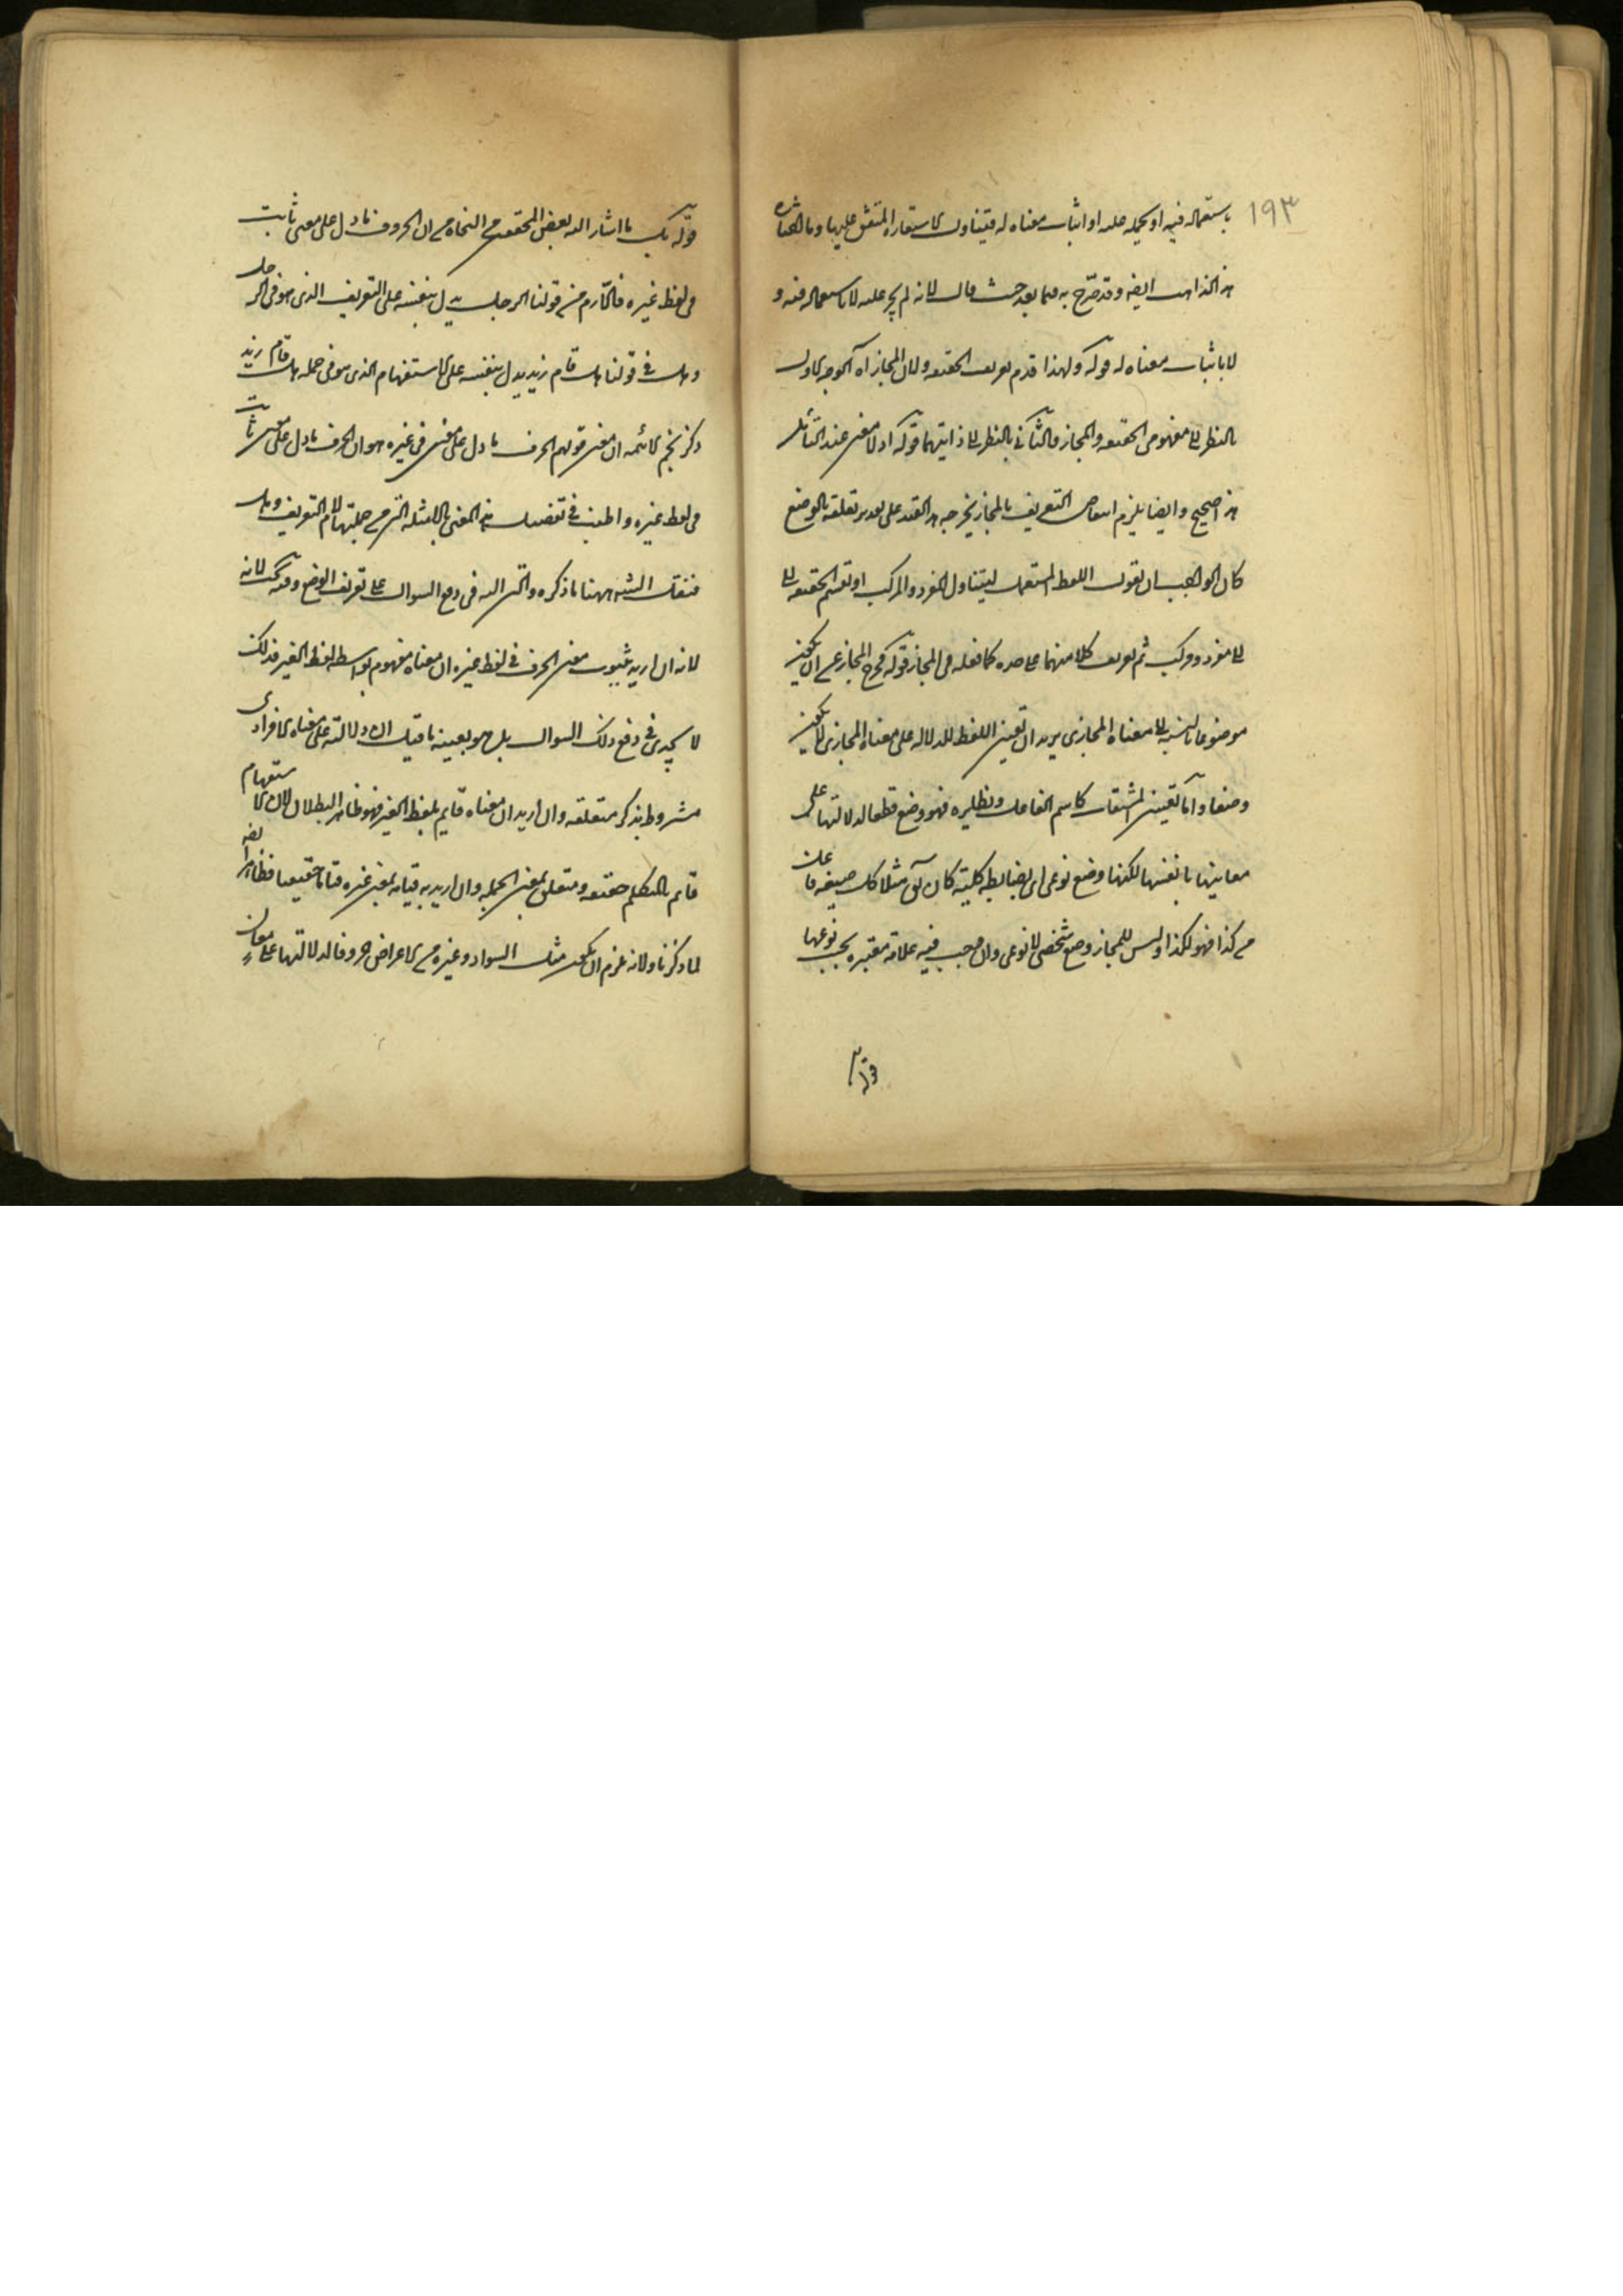 ١٩٣
باستعماله فيه او بحمله عليه او اثبات معناه له فيتناول الاستعارة المتفق عليها وما اختاره
هذا الذاهب ايضا وقد صرح به فيما بعد حيث قال لانه لم يجر عليه لا باستعماله فيه و
لا باثبات معناه له قوله ولهذا قدم تعريف الحقيقة ولان المجاز آه الوجه الاول
بالنظر الى مفهومي الحقيقة والمجاز والثاني بالنظر الى ذاتيهما قوله اولا معنى عند القائل
هذا صحيح وايضا يلزم انتقاض التعريف بالمجاز يخرج به هذا القيد على تقدير تعلقه بالوضع
كان الواجب ان يقول اللفظ المستعمل ليتناول المفرد والمركب او تقسم الحقيقة الى
الى مفرد ومركب ثم تعريف كلا منهما على حده كما فعله في المجاز قوله فخرج المجاز عن ان يكون
موضوعا بالنسبة الى معناه المجازي يريد ان تعيين اللفظ للدلالة على معناه المجازي لا يكون
وضعا واما تعيين المشتقات كاسم الفاعل ونظايره فهو وضع قطعا لدلالتها على
معانيها بانفسها لكنها وضع نوعي اي بضابطة كلية كان يق مثلا كل صيغة فاعل
من كذا فهو لكذا وليس للمجاز وضع شخصي لا نوعي وان وجب فيه علاقة معتبرة بحسب نوعها
قوله
قوله بل ما اشار اليه بعض المحققين من النحاة من ان الحروف ما دل على معنى ثابت
في لفظ غيره فاللام في قولنا الرجل يدل بنفسه على التعريف الذي هو في الرجل
وهل في قولنا هل قام زيد يدل بنفسه على الاستفهام الذي هو في جملة هل قام زيد
ذكر نجم الائمة ان معنى قولهم الحرف ما دل على معنى في غيره هو ان الحرف ما دل على معنى ثابت
في لفظ غيره واطنب في تفصيل هذا المعنى بالامثلة التي من جملتها لام التعريف وهل
فنقل الشه ههنا ما ذكره والتجئ اليه في دفع السوال على تعريف الوضع وفيه بحث لانه
لانه ان اريد بثبوت معنى الحرف في لفظ غيره ان معناه مفهوم بواسطة لفظ الغير فذلك
لا يجدي في دفع ذلك السوال بل هو بعينه ما قيل ان دلالته على معناه الافرادي
مشروط بذكر متعلقه وان اريد ان معناه قايم بلفظ الغير فهو ظاهر البطلان لان الاستفهام
قايم بالمتكلم حقيقة ومتعلق بمعنى الجملة وان اريد به قيامه بمعنى غيره قياما حقيقيا فظاهر ايضا
لما ذكرنا ولانه يلزم ان يكون مثل السواد وغيره من الاعراض حروفا لدلالتها على معان